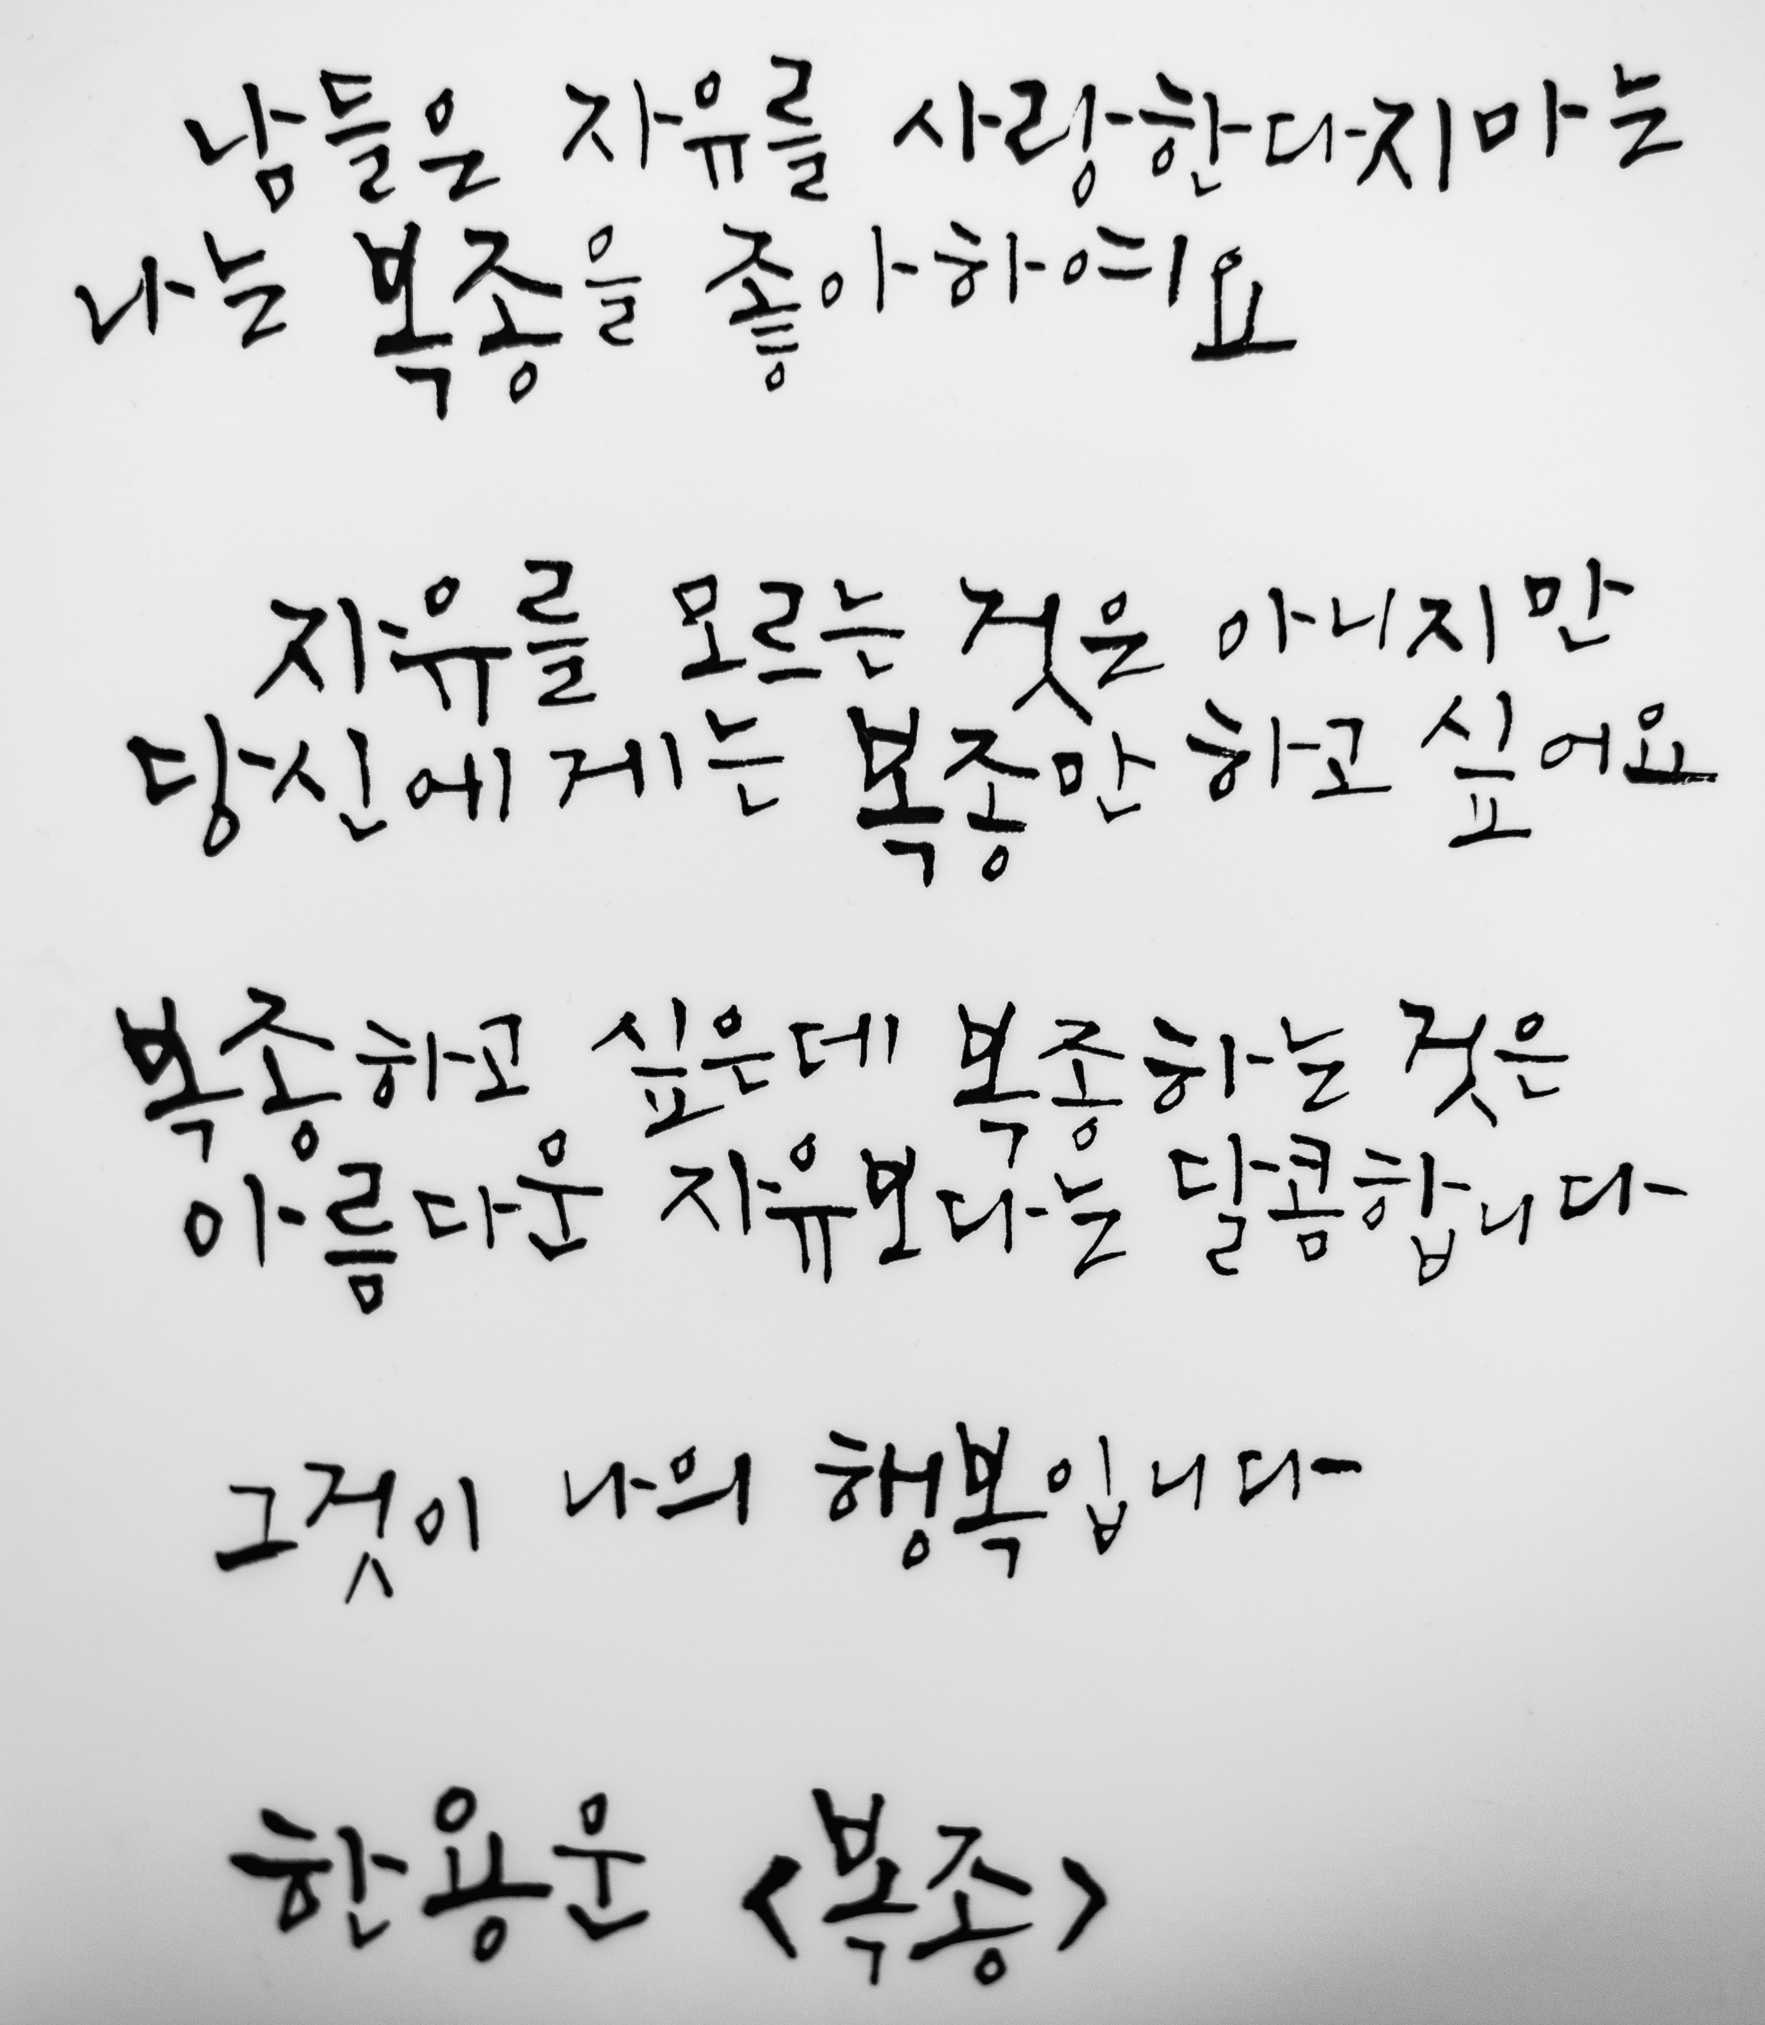 남들은 자유를 사랑한다지마는
나는 복종을 좋아하여요
자유를 모르는 것은 아니지만
당신에게는 복종만 하고 싶어요
복종하고 싶은데 복종하는 것은
아름다운 자유보다는 달콤합니다
그것이 나의 행복입니다
한용운 <복종>